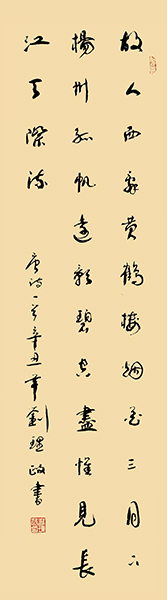 故人西辭黄鶴樓烟花三月下
揚州孤帆遠影碧空盡惟見長
江天際流
唐詩一首辛丑年劉理政書